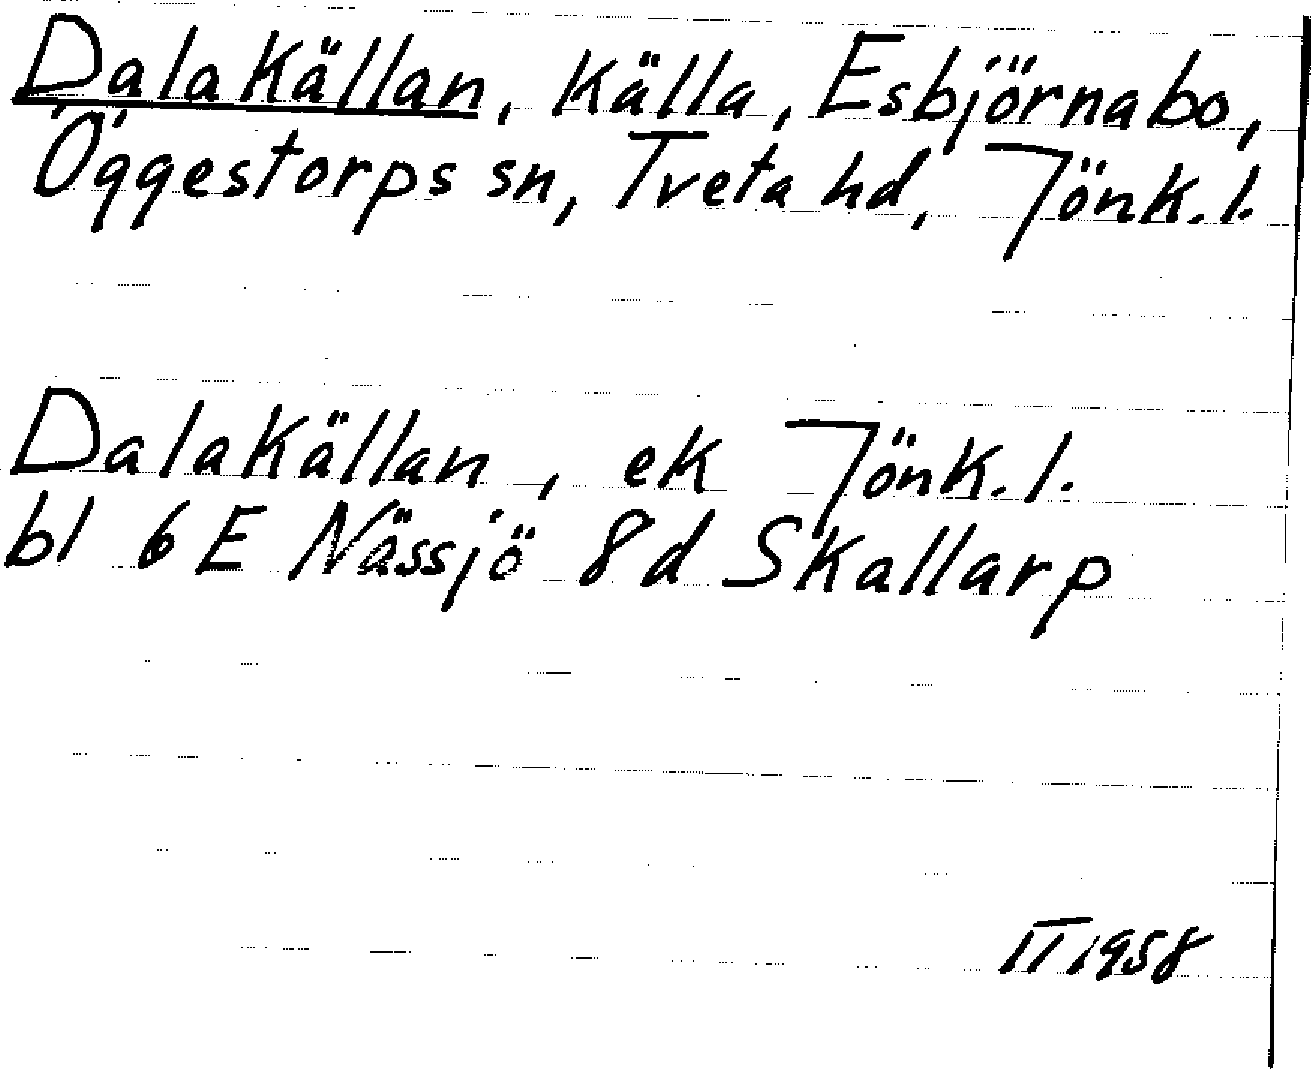 Dalakällan, källa, Esbjörnabo,
Öggestorps sn, Tveta hd, Jönk. l.
Dalakällan, ek Jönk. l.
bl 6 E Nässjö 8d Skallarp
II 1958